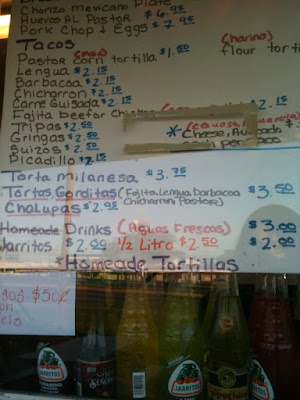 Chorizo Mexicano Plate
Huevos Al Pastor $6.95
Pork Chop & Eggs $7.95
Tacos
(maiz) (harina)
Pastor corn tortilla $1.50 flour tor
Lengua $2.15
Barbacoa $2.15
Chicharron $2.15
Carne Guisada $2.15
Fajita beef or Chicken $2.15
Tripas $2.50
Gringas $2.50
Suizos $2.50
Picadillo $2.15
* Cheese, Avocado
Torta milanesa $3.75
Tortas, Gorditas (Fajita, Lengua, Barbacoa $3.50
Chicharron, Pastor)
Chalupas $2.95
Homeade Drinks (Aguas Frescas) $3.00
Jarritos $2.00 1/2 Litro $2.50 $2.00
*Homeade Tortillas
50¢
JARRITOS
SEÑORIAL
JARRITOS
Topo Chico
JARRITOS